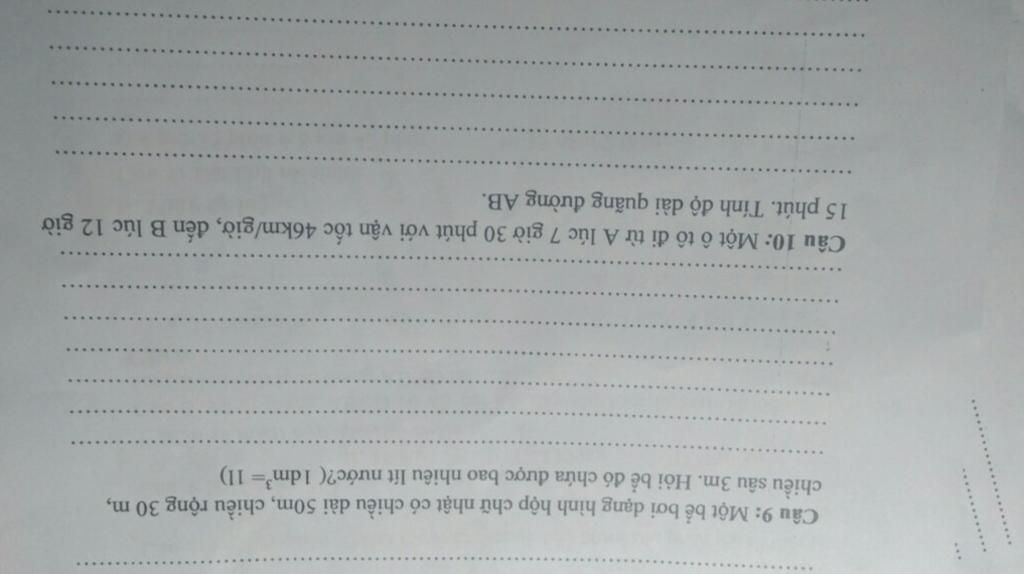 Câu 9: Một bể bơi dạng hình hộp chữ nhật có chiều dài 50m, chiều rộng 30 m,
chiều sâu 3m. Hỏi bể đó chứa được bao nhiêu lít nước?( 1dm³= 1l)
Câu 10: Một ô tô đi từ A lúc 7 giờ 30 phút với vận tốc 46km/giờ, đến B lúc 12 giờ
15 phút. Tính độ dài quãng đường AB.